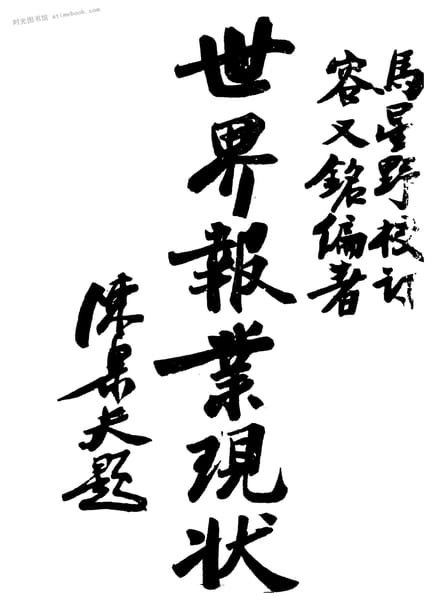 时光图书馆 atimebook.com
馬星野校訂
容又銘編著
世界報業現狀
陳果夫題